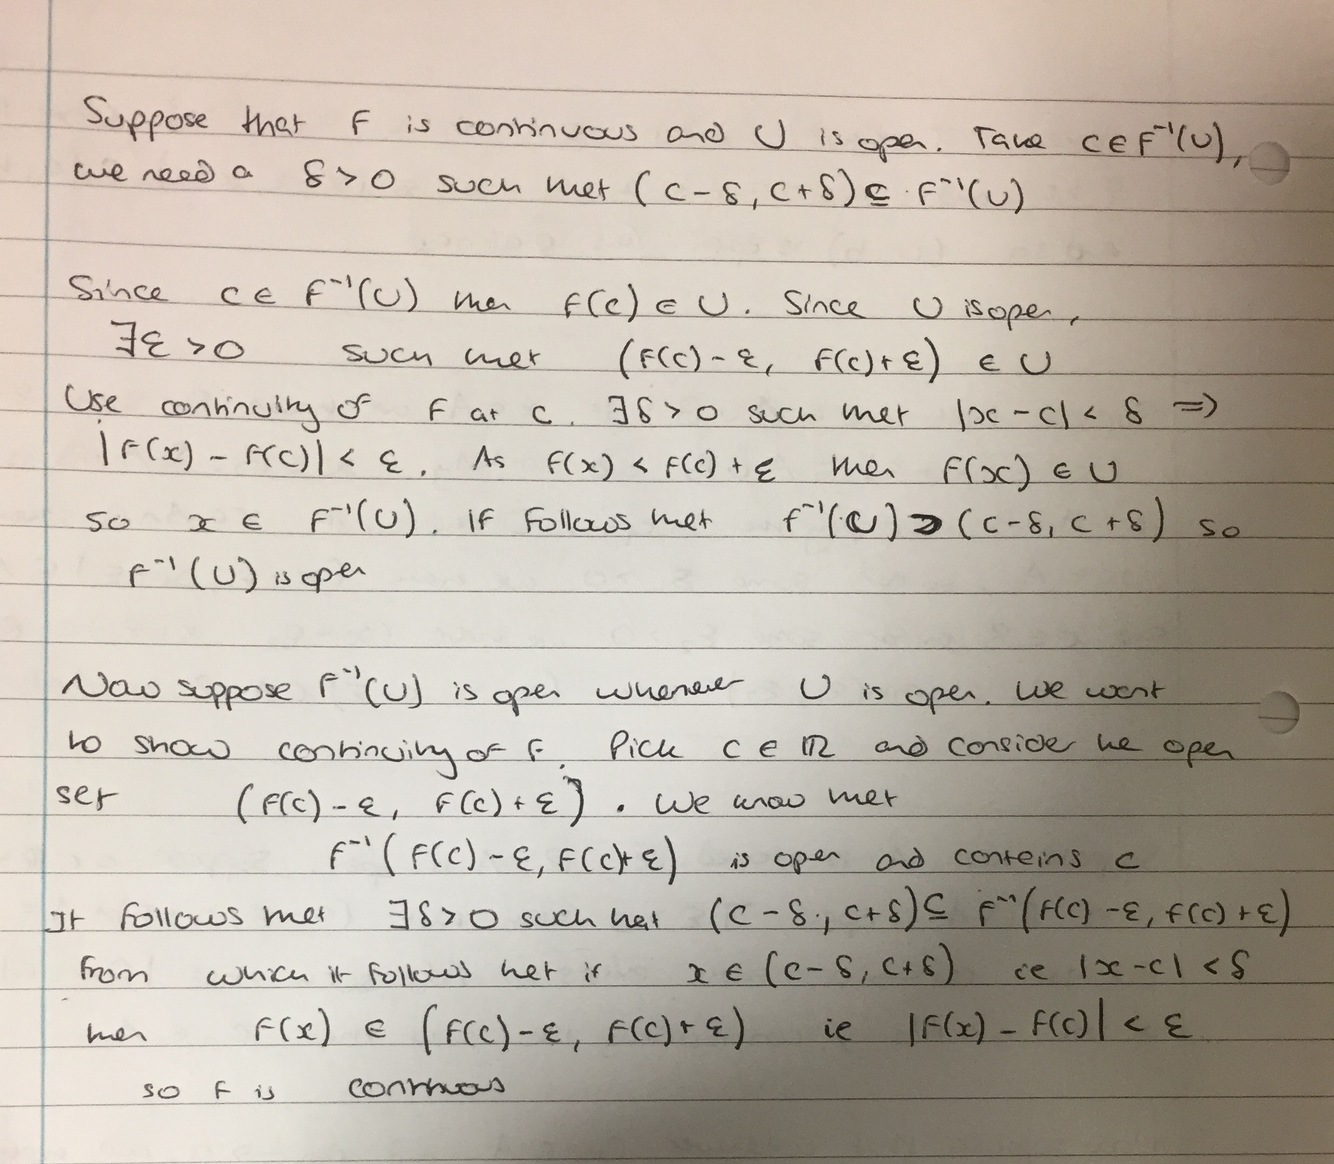 Suppose that f is continuous and U is open. Take c ∈ f⁻¹(U),
we need a δ > 0 such that (c - δ, c + δ) ⊆ f⁻¹(U)
Since c ∈ f⁻¹(U) then f(c) ∈ U. Since U is open,
∃ε > 0 such that (f(c) - ε, f(c) + ε) ∈ U
Use continuity of f at c. ∃δ > 0 such that |x - c| < δ ⇒
|f(x) - f(c)| < ε. As f(x) < f(c) + ε then f(x) ∈ U
so x ∈ f⁻¹(U). If follows that f⁻¹(U) ⊃ (c - δ, c + δ) so
f⁻¹(U) is open
Now suppose f⁻¹(U) is open whenever U is open. We want
to show continuity of f. Pick c ∈ ℝ and consider the open
set (f(c) - ε, f(c) + ε). We know that
f⁻¹(f(c) - ε, f(c) + ε) is open and contains c
It follows that ∃δ > 0 such that (c - δ, c + δ) ⊆ f⁻¹(f(c) - ε, f(c) + ε)
from which it follows that if x ∈ (c - δ, c + δ) ie |x - c| < δ
then f(x) ∈ (f(c) - ε, f(c) + ε) ie |f(x) - f(c)| < ε
so f is continuous